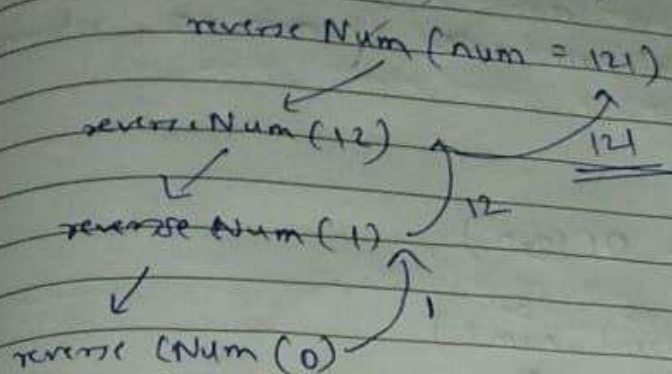 reverse Num (num = 121)
reverse Num (12)
121
12
reverse Num (1)
1
reverse (Num (0)